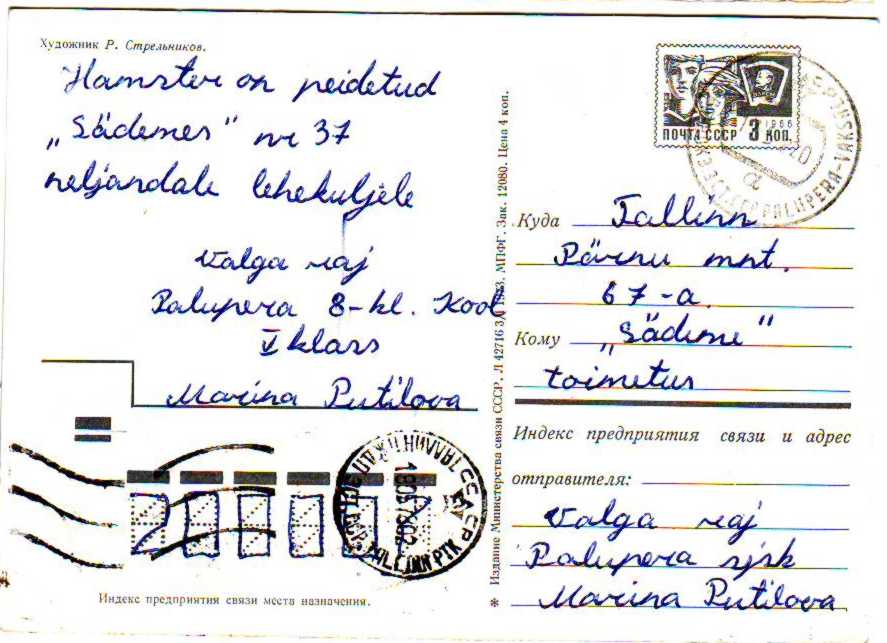 Художник Р. Стрельников.
Hamster on peidetud
„Sädemes" nr 37
neljandale leheküljele
Valga raj
Palupera 8-kl. Kool
V klass
Marina Putilova
Индекс предприятия связи места назначения.
* Издание Министерства связи СССР. 1973. МПФГ. Зак. 12080. Цена 4 коп.
1966
ПОЧТА СССР 3 КОП.
PALUPERA
Куда Tallinn
Pärnu mnt.
67-a
Кому „Sädeme"
toimetus
Индекс предприятия связи и адрес
отправителя:
Valga raj
Palupera sjsk
Marina Putilova
TALLINN PTK